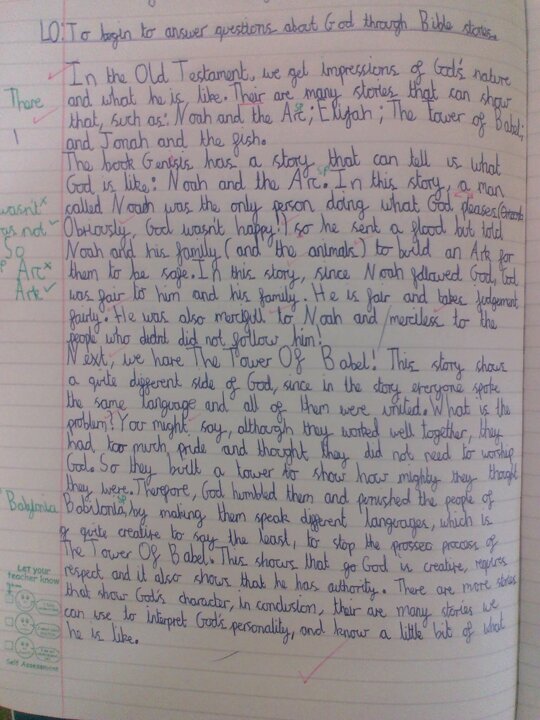 LO: To begin to answer questions about God through Bible stories.
In the Old Testament, we get impressions of God's nature
There
and what he is like. Their are many stories that can show
that, such as: Noah and the Arc; Elijah; The tower of Babel;
and Jonah and the fish.
The book Genisis has a story that can tell is what
God is like: Noah and the Arc. In this story, a man
wasn't x
called Noah was the only person doing what God pleases
was not ✓
Obviously, God wasn't happy! so he sent a flood but told
So
Noah and his family (and the animals) to build an Ark for
Arc x
them to be safe. In this story, since Noah followed God, God
Ark ✓
was fair to him and his family. He is fair and takes judgement
fairly. He was also merciful to Noah and merciless to the
people who didnt did not follow him!
Next, we have The Tower Of Babel! This story shows
a quite different side of God, since in the story everyone spoke
the same language and all of them were united. What is the
problem? You might say, although they worked well together, they
had too much pride and thought they did not need to worship
God. So they built a tower to show how mighty they thought
they were. Therefore, God humbled them and punished the people of
Babylonia
Babilonia, by making them speak different languages, which is
quite creative to say the least, to stop the prossec process of
The Tower Of Babel. This shows that go God is creative, requires
respect and it also shows that he has authority. There are more stories
that show God's character, in conclusion, their are many stories we
can use to interpret God's personality, and know a little bit of what
he is like.
Let your
teacher know
Self Assessment